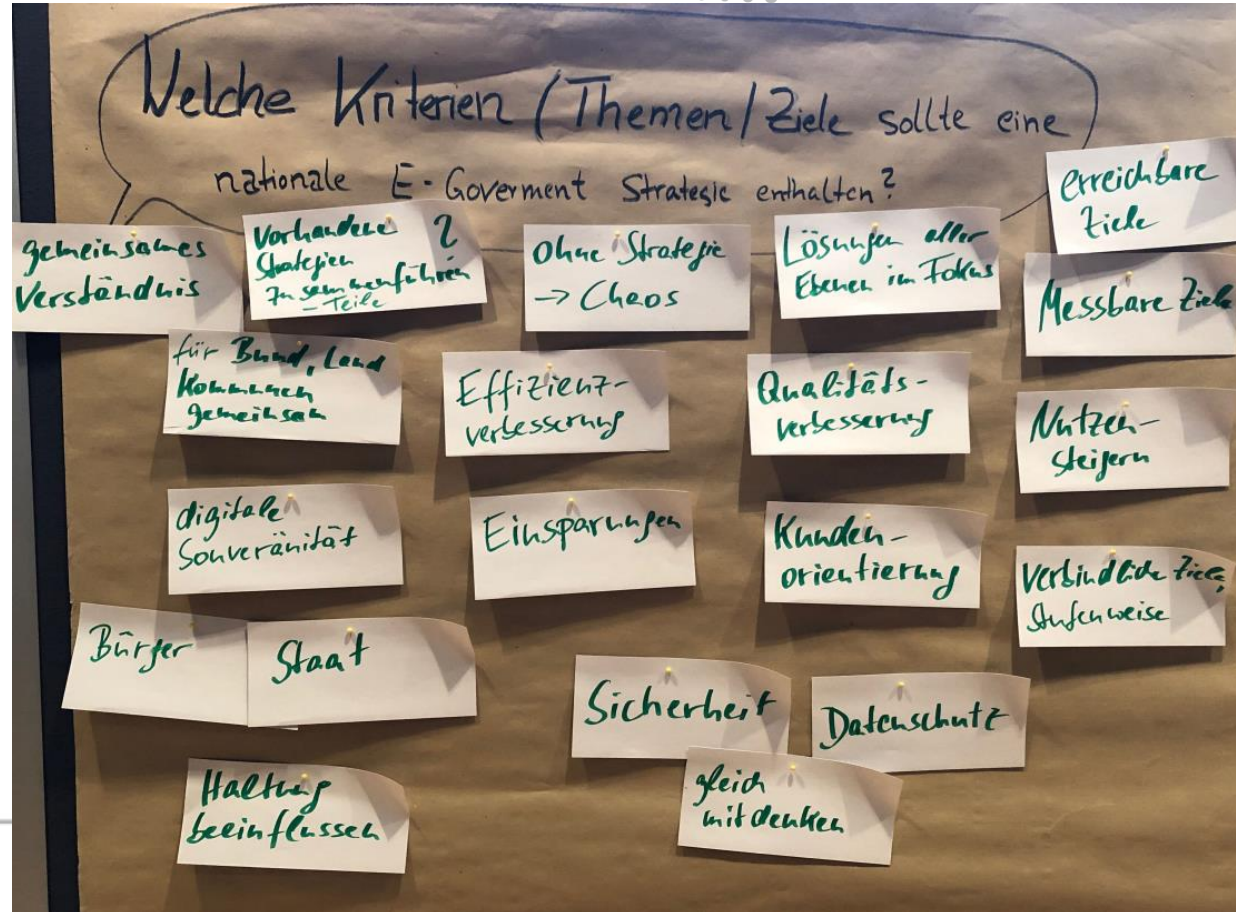 Welche Kriterien (Themen/Ziele sollte eine
nationale E-Goverment Strategie enthalten?
erreichbare
Ziele
gemeinsames
Verständnis
Vorhandene ?
Strategien
Zusammenführen
- Teile
Ohne Strategie
→ Chaos
Lösungen aller
Ebenen im Fokus
Messbare Ziele
für Bund, Land
Kommunen
gemeinsam
Effizienz-
verbesserung
Qualitäts-
verbesserung
Nutzen-
steigern
digitale
Souveränität
Einsparungen
Kunden-
orientierung
Verbindliche Ziele,
Stufenweise
Bürger
Staat
Sicherheit
Datenschutz
Haltung
beeinflussen
gleich
mitdenken